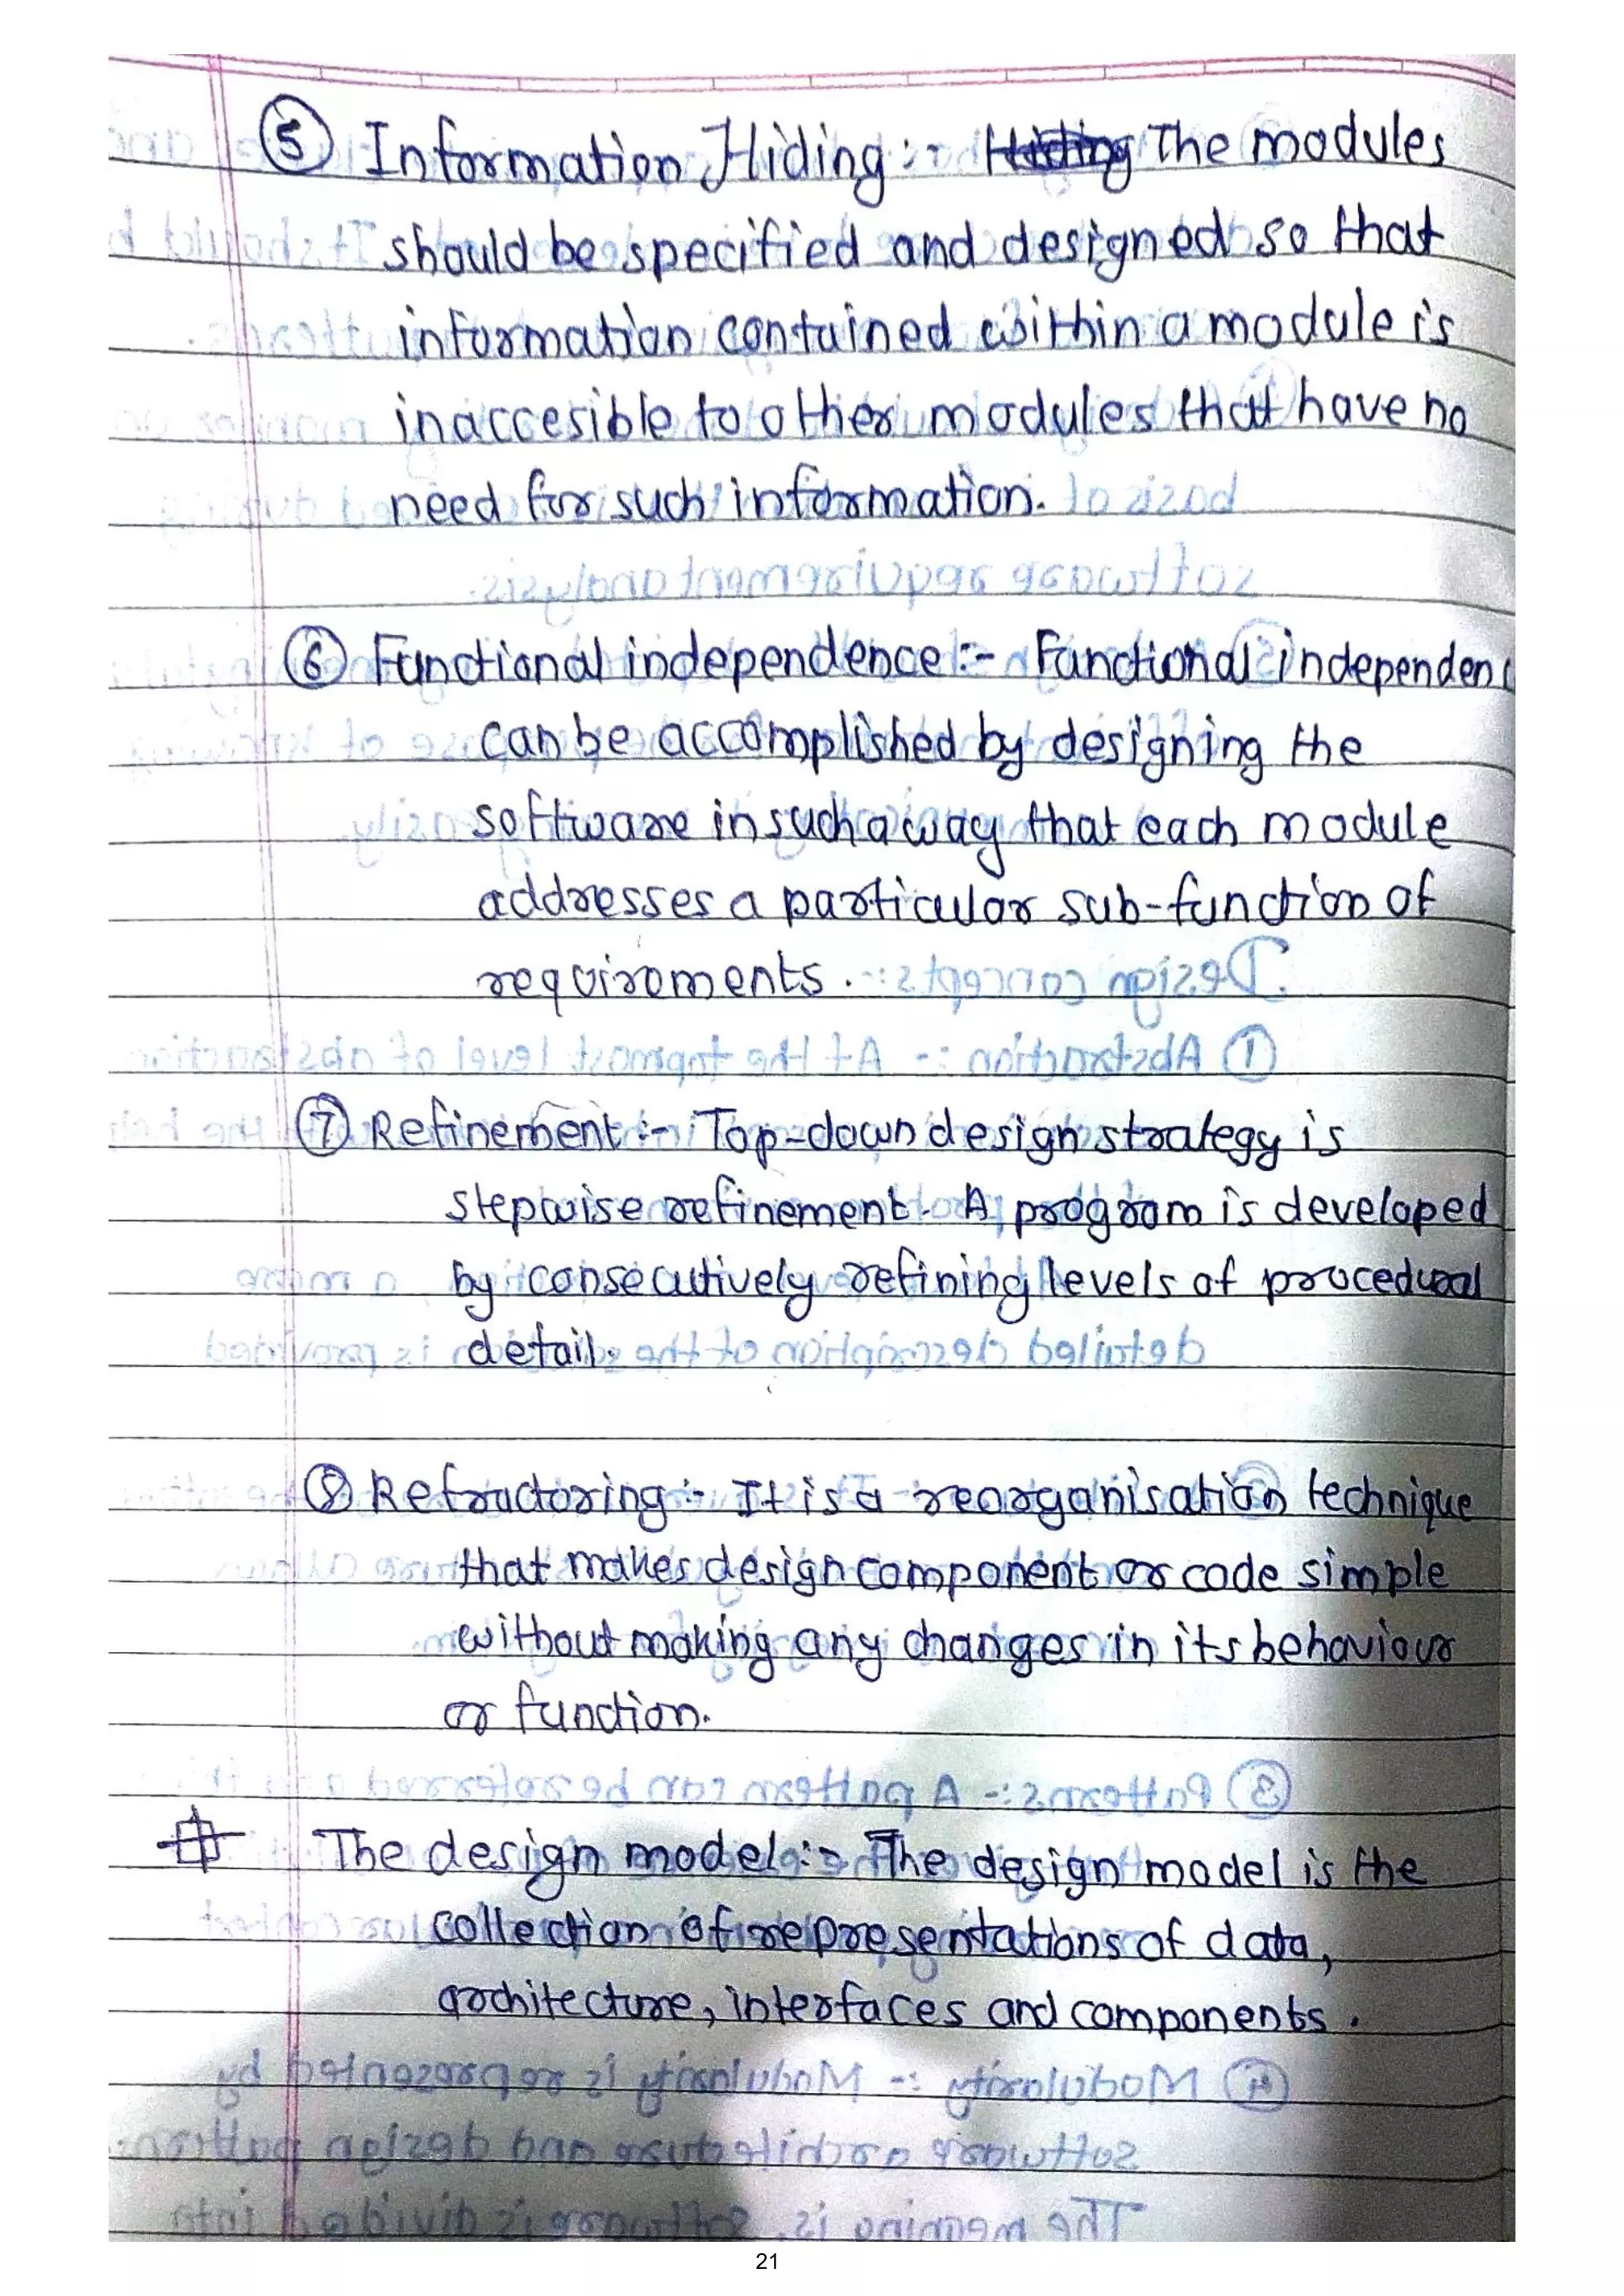 ⑤ Information Hiding :- The modules
should be specified and designed so that
information contained within a module is
inaccesible to other modules that have no
need for such information.
⑥ Functional independence :- Functional independenc
can be accomplished by designing the
software in such a way that each module
addresses a particular sub-function of
requirements.
⑦ Refinement :- Top-down design strategy is
stepwise refinement. A program is developed
by consecutively refining levels of procedural
detail.
⑧ Refractoring :- It is a reorganisation technique
that makes design component or code simple
without making any changes in its behaviour
or function.
The design model :- The design model is the
collection of representations of data,
architecture, interfaces and components.
21